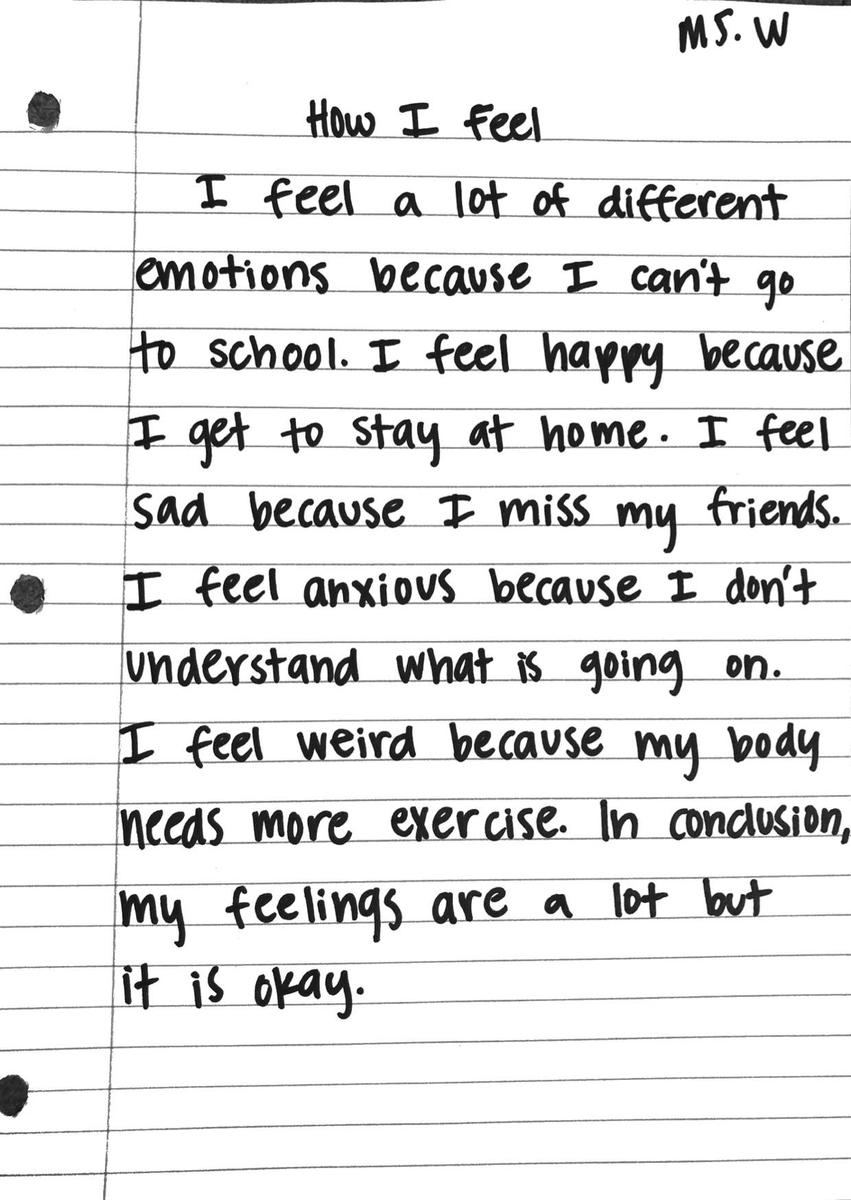 MS. W
How I feel
I feel a lot of different
emotions because I can't go
to school. I feel happy because
I get to stay at home. I feel
sad because I miss my friends.
I feel anxious because I don't
understand what is going on.
I feel weird because my body
needs more exercise. In conclusion,
my feelings are a lot but
it is okay.